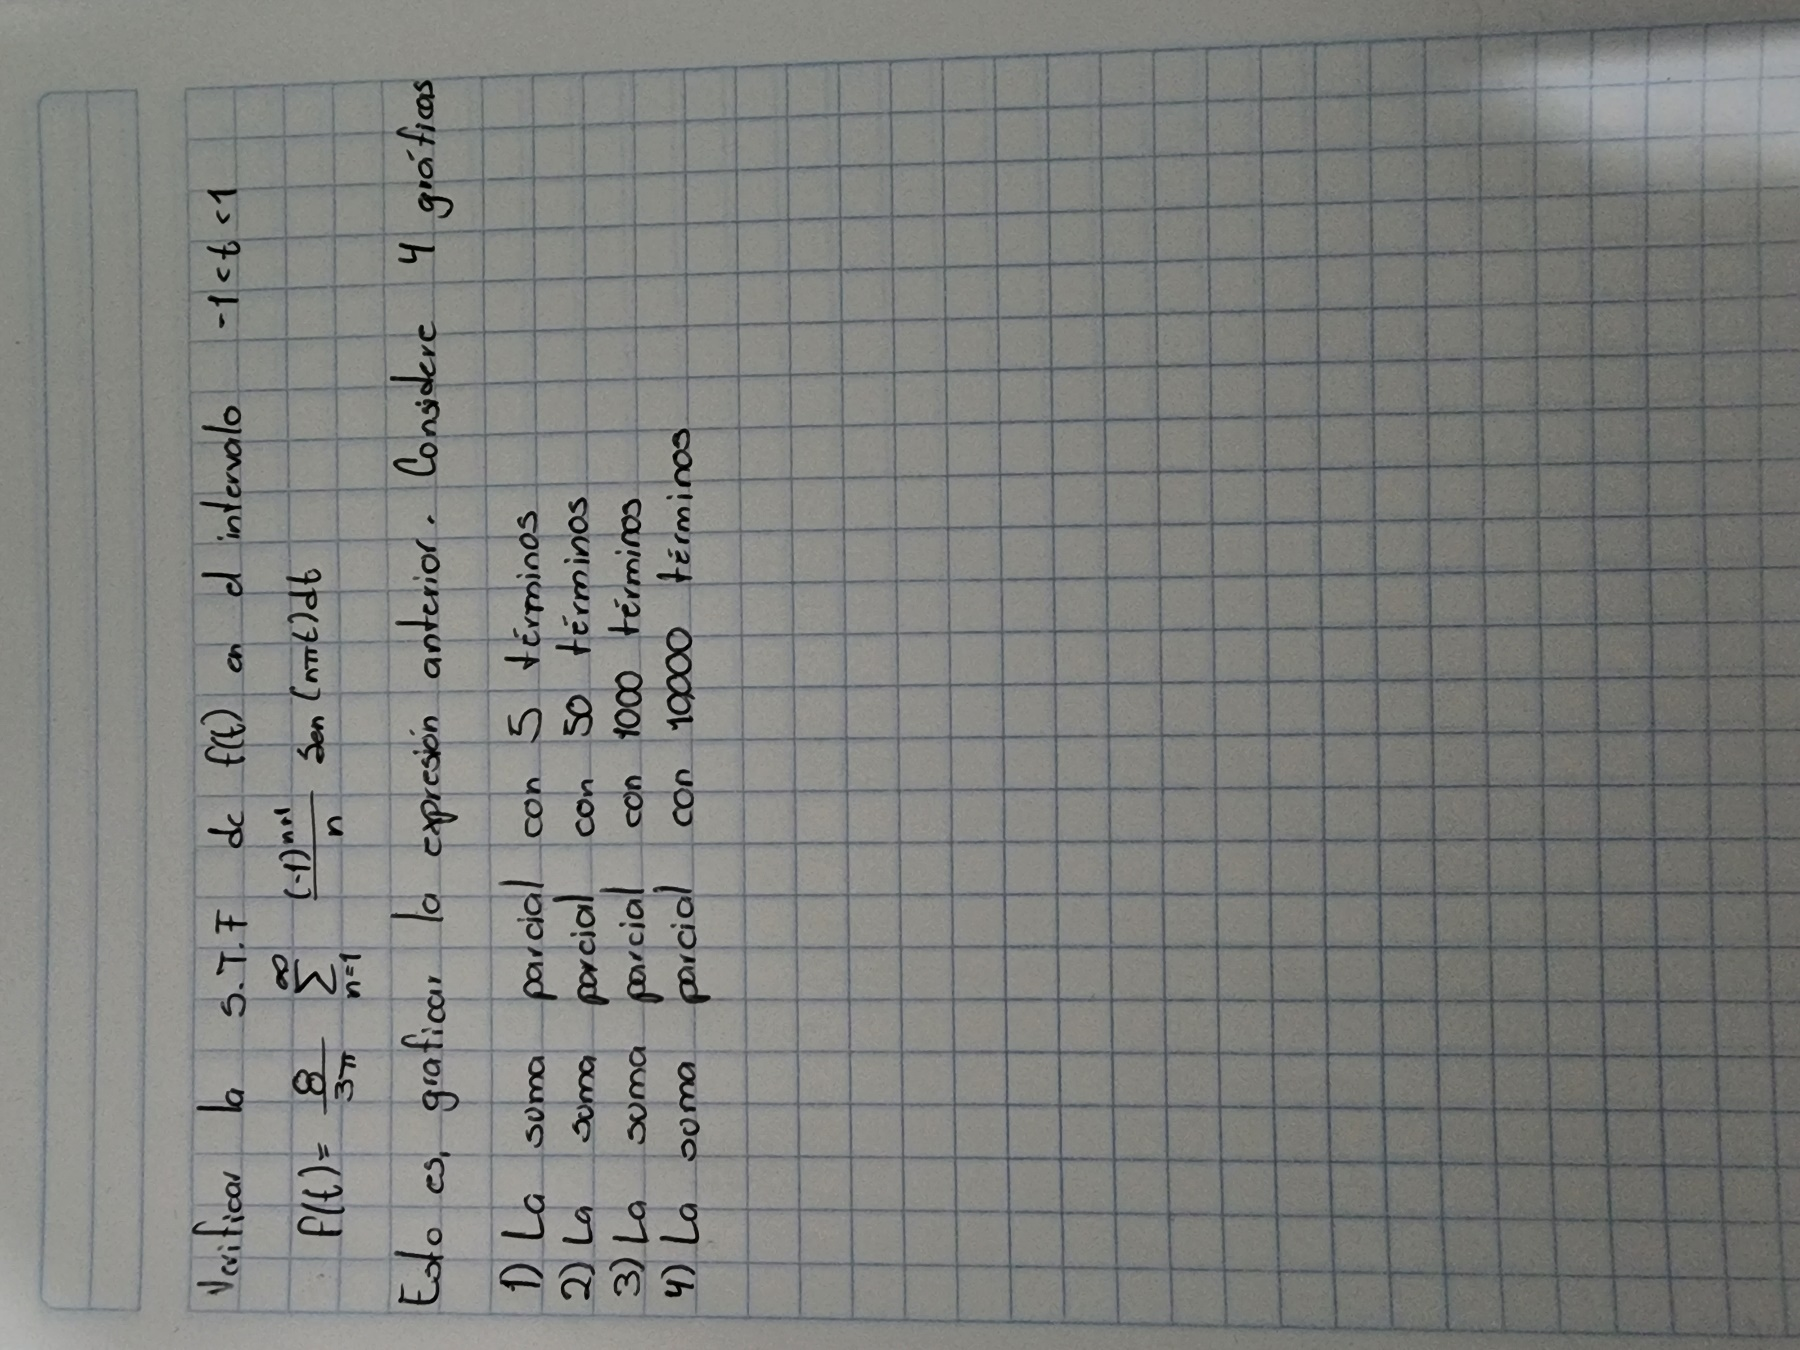 Verificar la S.T.F de f(t) en el intervalo -1<t<1
f(t) = 8/3π ∑_{n=1}^{∞} (-1)^{n+1}/n Sen (nπt)dt
Esto es, graficar la expresión anterior. Considere 4 gráficas
1) La suma parcial con 5 términos
2) La suma parcial con 50 términos
3) La suma parcial con 1000 términos
4) La suma parcial con 10,000 términos